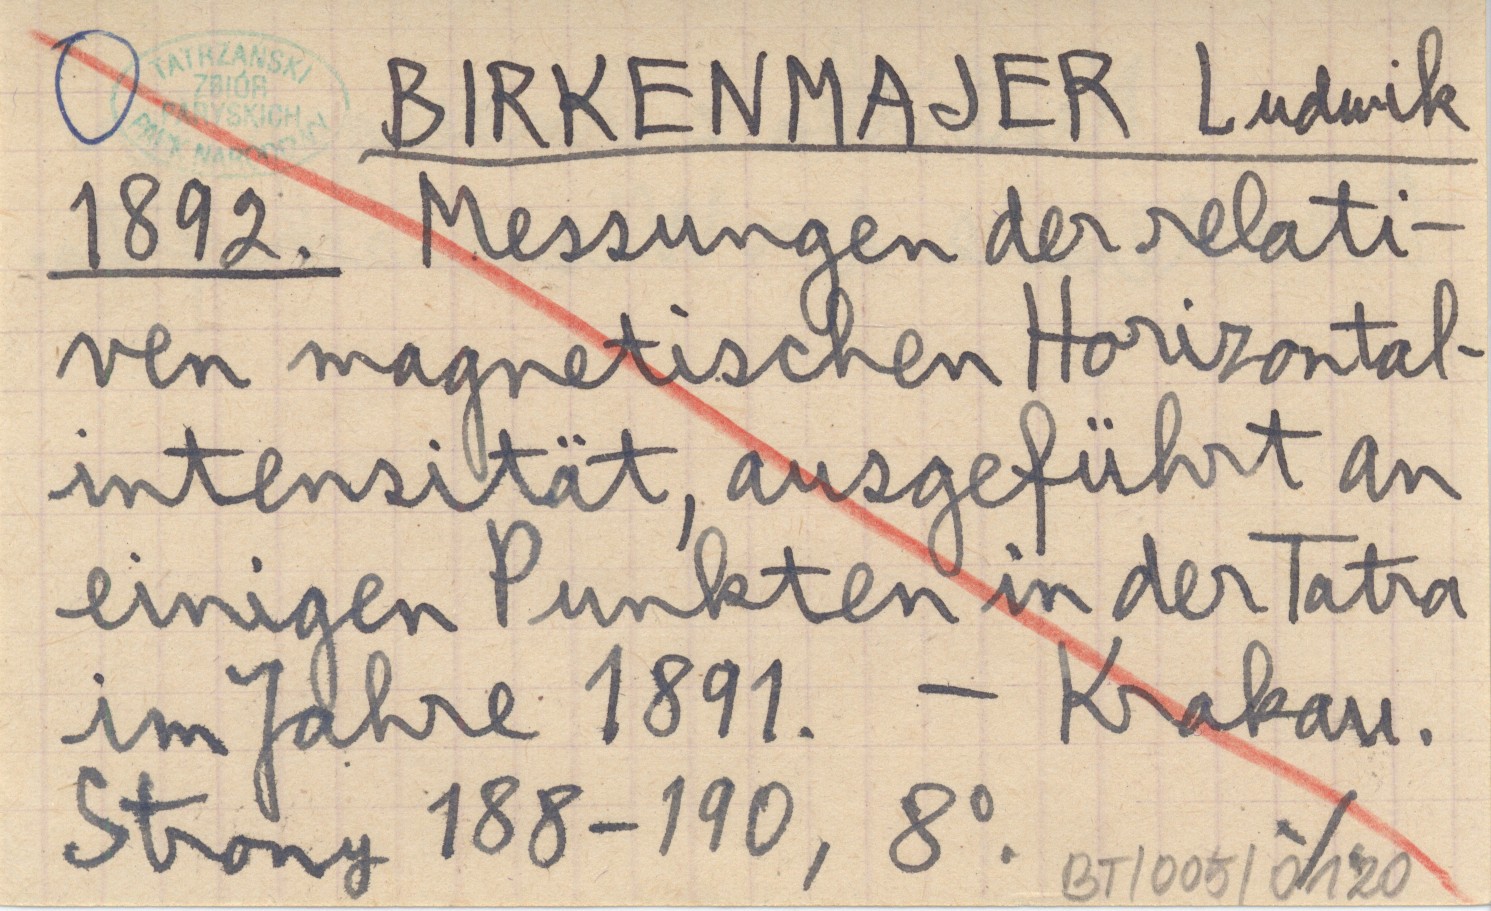 TATRZAŃSKI
ZBIÓR
PARYSKICH
PARK NARODOWY
BIRKENMAJER Ludwik
1892. Messungen der relati-
ven magnetischen Horizontal-
intensität, ausgeführt an
einigen Punkten in der Tatra
im Jahre 1891. — Krakau.
Strony 188-190, 8°. ./
BT/005/0120